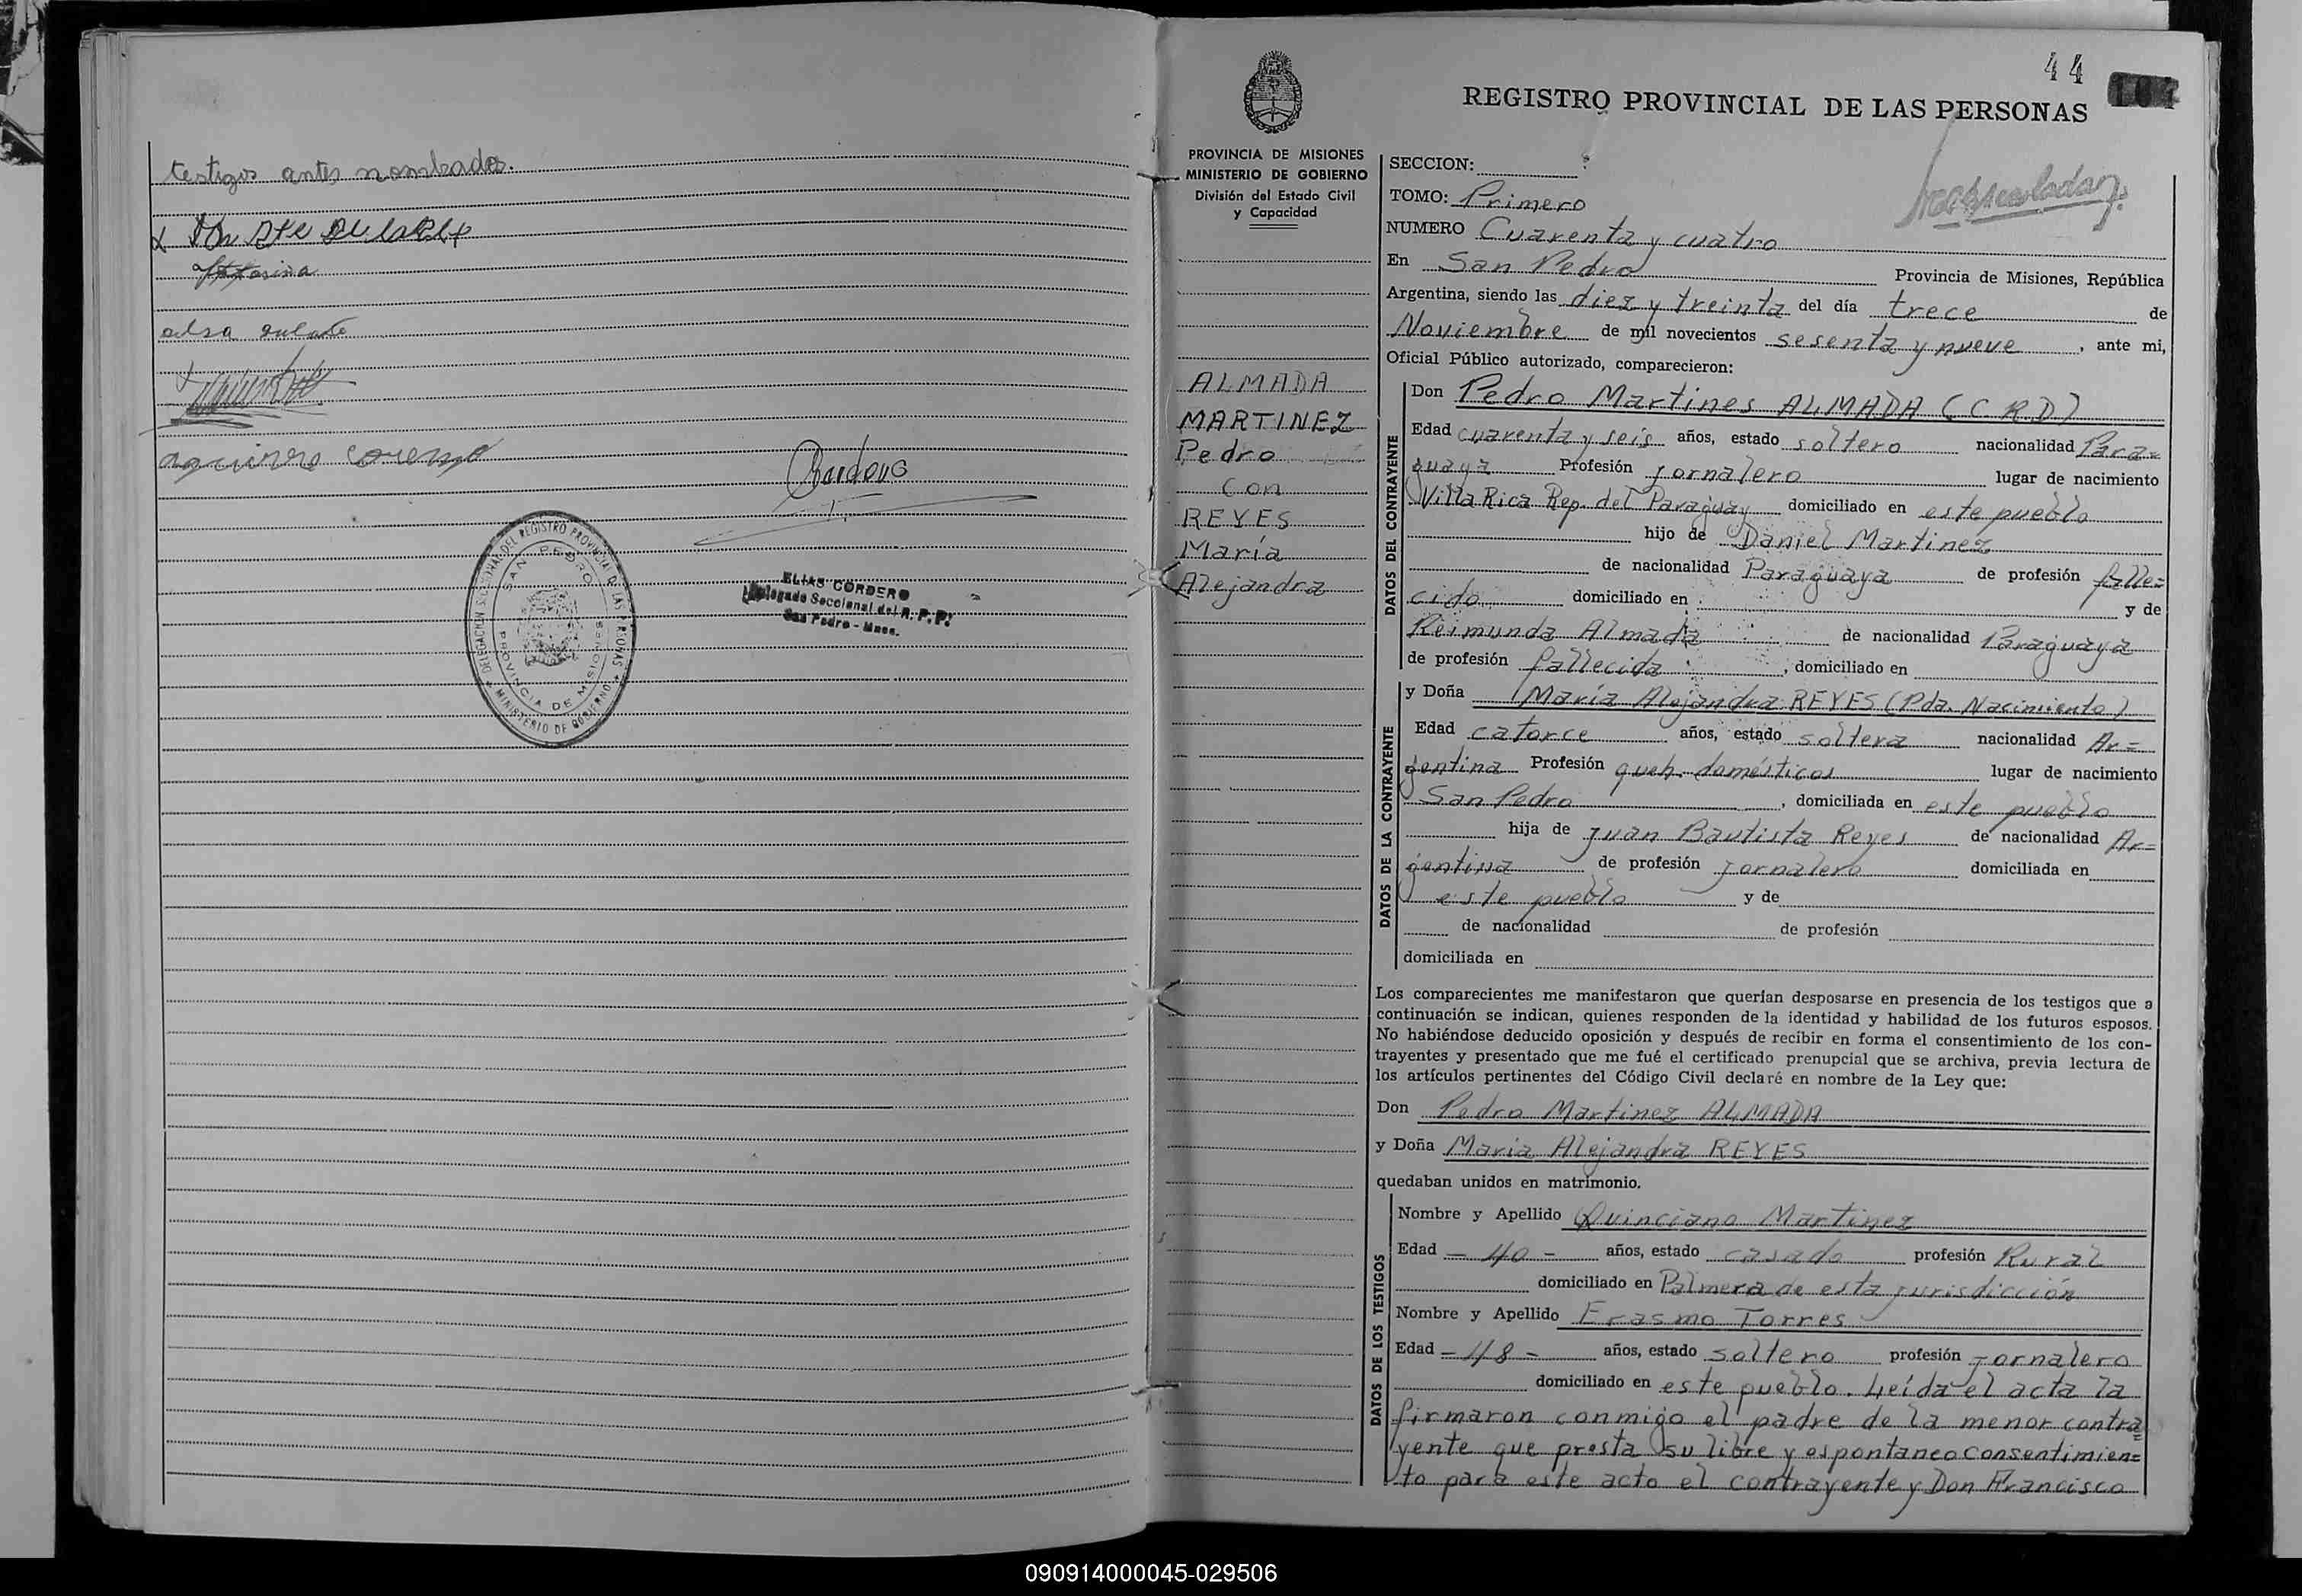 testigos antes nombados.
alsa
ELIAS CORDERO
Delegado Seccional del R. P. P.
San Pedro - Mnes.
DELEGACION SECCIONAL DEL REGISTRO PROVINCIAL DE LAS PERSONAS
MINISTERIO DE GOBIERNO
SAN PEDRO
PROVINCIA DE MISIONES
44
REGISTRO PROVINCIAL DE LAS PERSONAS
PROVINCIA DE MISIONES
MINISTERIO DE GOBIERNO
División del Estado Civil
y Capacidad
ALMADA
MARTINEZ
Pedro
con
REYES
María
Alejandra
SECCION:
TOMO: Primero
NUMERO Cuarenta y cuatro
En San Pedro Provincia de Misiones, República
Argentina, siendo las diez y treinta del día trece de
Noviembre de mil novecientos sesenta y nueve, ante mi,
Oficial Público autorizado, comparecieron:
DATOS DEL CONTRAYENTE
Don Pedro Martines ALMADA (C R D)
Edad cuarenta y seis años, estado soltero nacionalidad Para=
guaya Profesión jornalero lugar de nacimiento
Villa Rica Rep. del Paraguay domiciliado en este pueblo
hijo de Daniel Martinez
de nacionalidad Paraguaya de profesión falle=
cido domiciliado en y de
Reimunda Almada de nacionalidad Paraguaya
de profesión fallecida, domiciliado en
DATOS DE LA CONTRAYENTE
y Doña María Alejandra REYES (Pda. Nacimiento)
Edad catorce años, estado soltera nacionalidad Ar=
gentina Profesión queh. domésticos lugar de nacimiento
San Pedro, domiciliada en este pueblo
hija de Juan Bautista Reyes de nacionalidad Ar=
gentina de profesión jornalero domiciliada en
este pueblo y de
de nacionalidad de profesión
domiciliada en
Los comparecientes me manifestaron que querían desposarse en presencia de los testigos que a
continuación se indican, quienes responden de la identidad y habilidad de los futuros esposos.
No habiéndose deducido oposición y después de recibir en forma el consentimiento de los con-
trayentes y presentado que me fué el certificado prenupcial que se archiva, previa lectura de
los artículos pertinentes del Código Civil declaré en nombre de la Ley que:
Don Pedro Martinez ALMADA
y Doña María Alejandra REYES
quedaban unidos en matrimonio.
DATOS DE LOS TESTIGOS
Nombre y Apellido Quinciano Martinez
Edad - 40 - años, estado casado profesión Rural
domiciliado en Palmera de esta jurisdicción
Nombre y Apellido Erasmo Torres
Edad - 48 - años, estado soltero profesión jornalero
domiciliado en este pueblo. Leída el acta la
firmaron conmigo el padre de la menor contra=
yente que presta su libre y espontaneo consentimien=
to para este acto el contrayente y Don Francisco
090914000045-029506